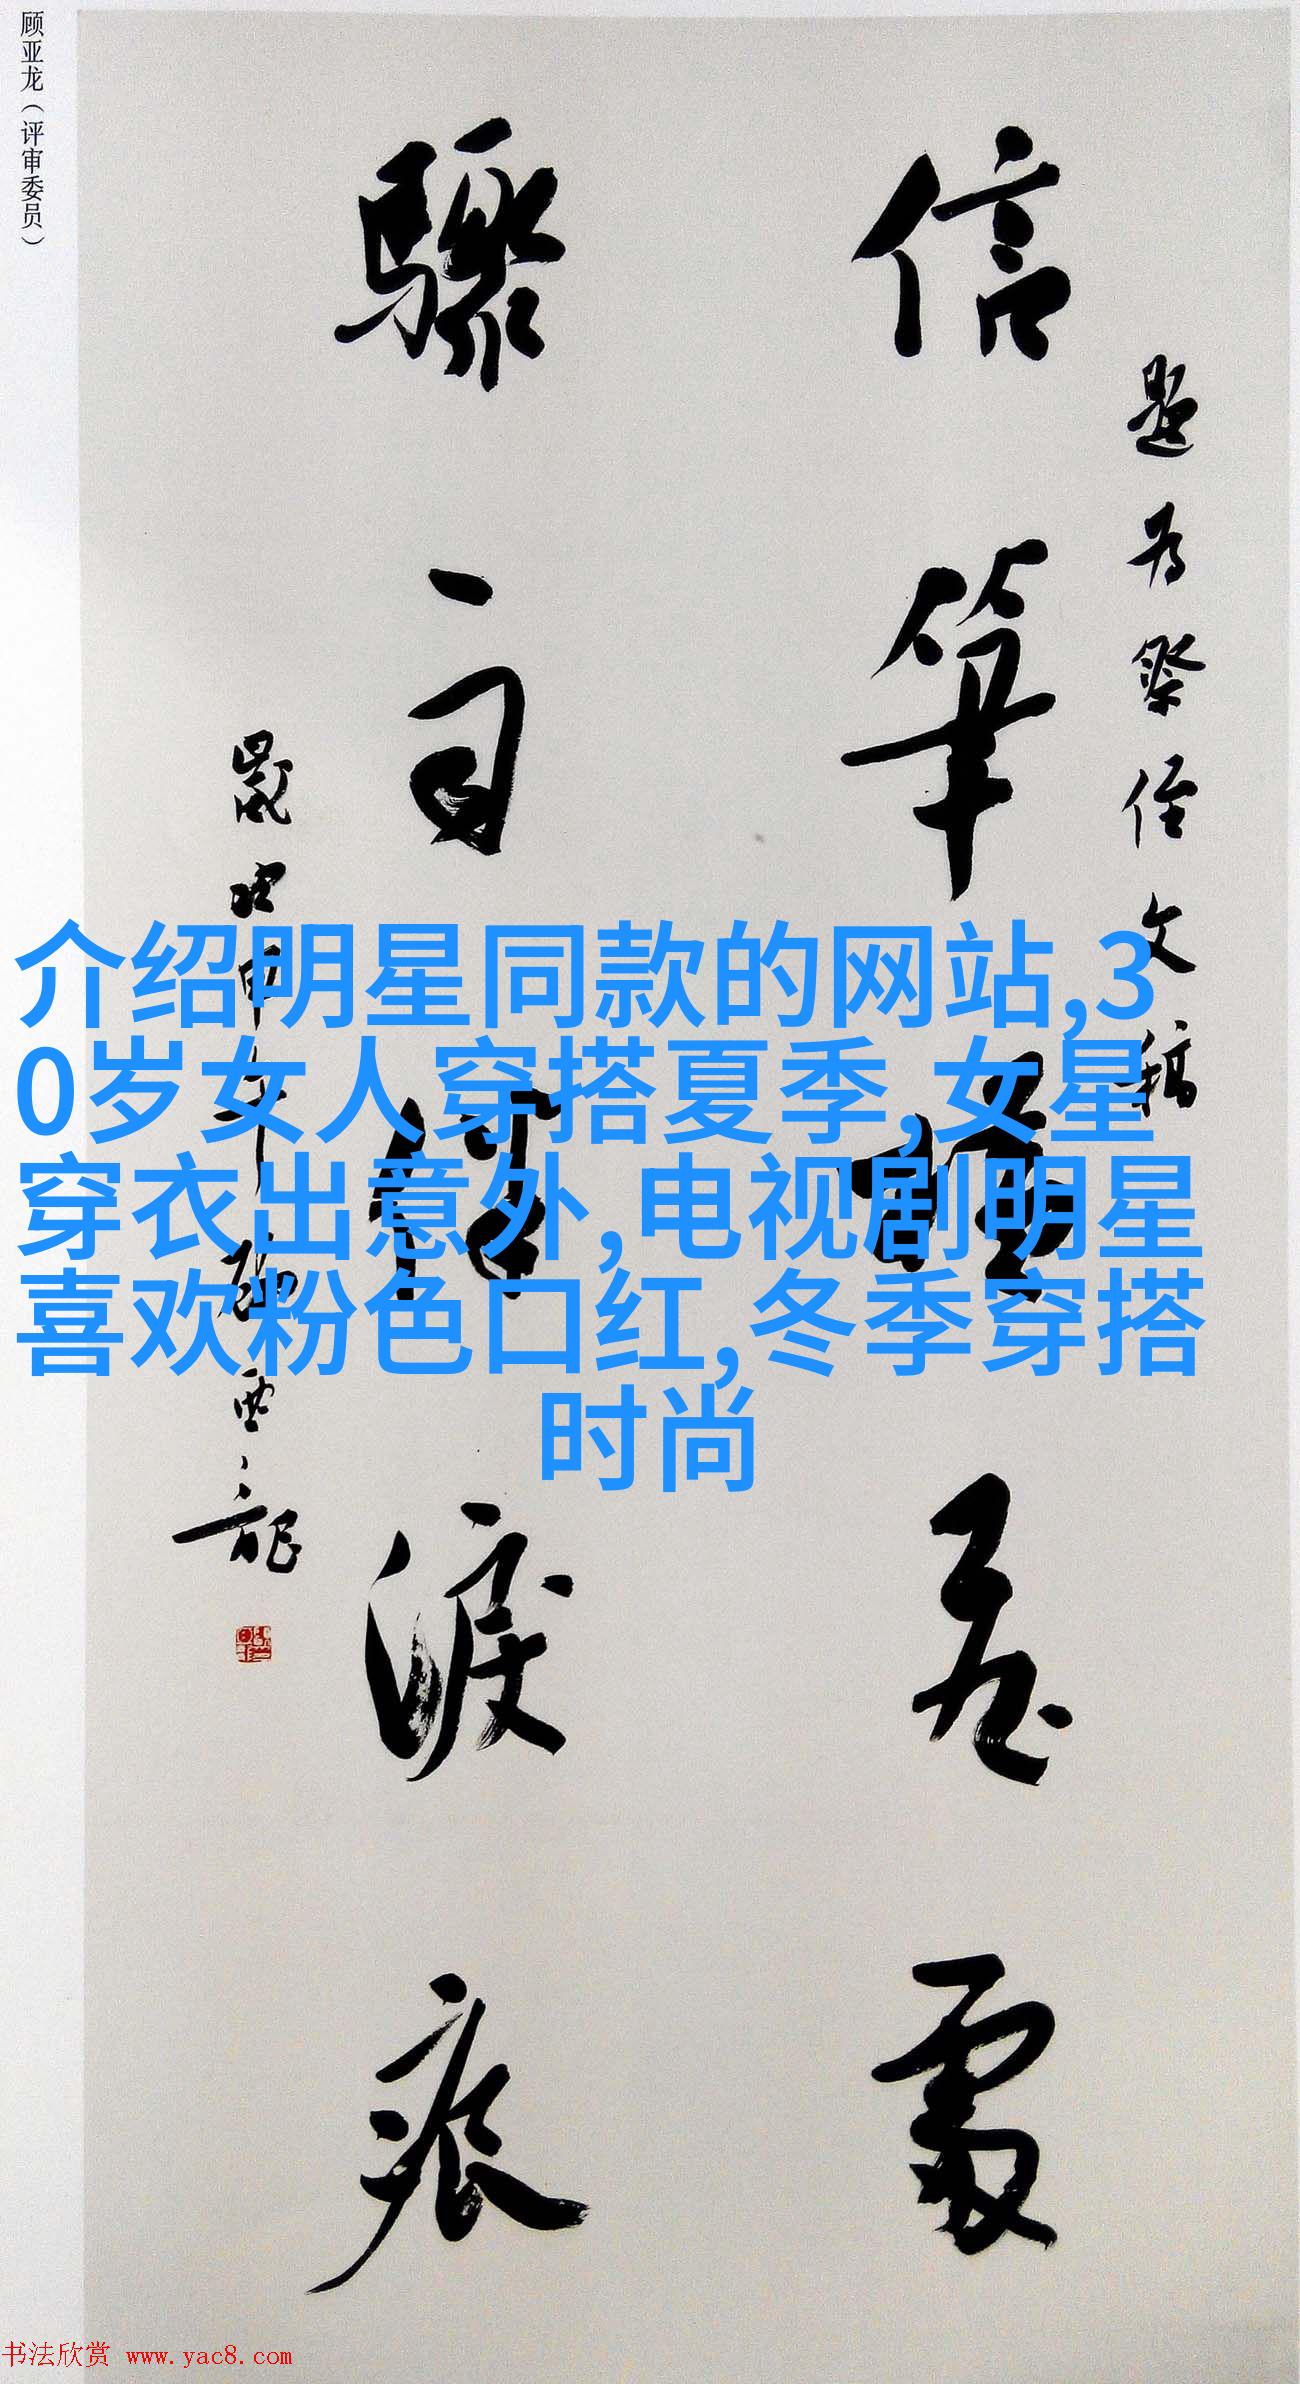 顾亚龙（评审委员）
题为祭侄文稿
信筆處
驟淚痕
亚龍
介绍明星同款的网站,3
0岁女人穿搭夏季,女星
穿衣出意外,电视剧明星
喜欢粉色口红,冬季穿搭
时尚
书法欣赏 www.yac8.com